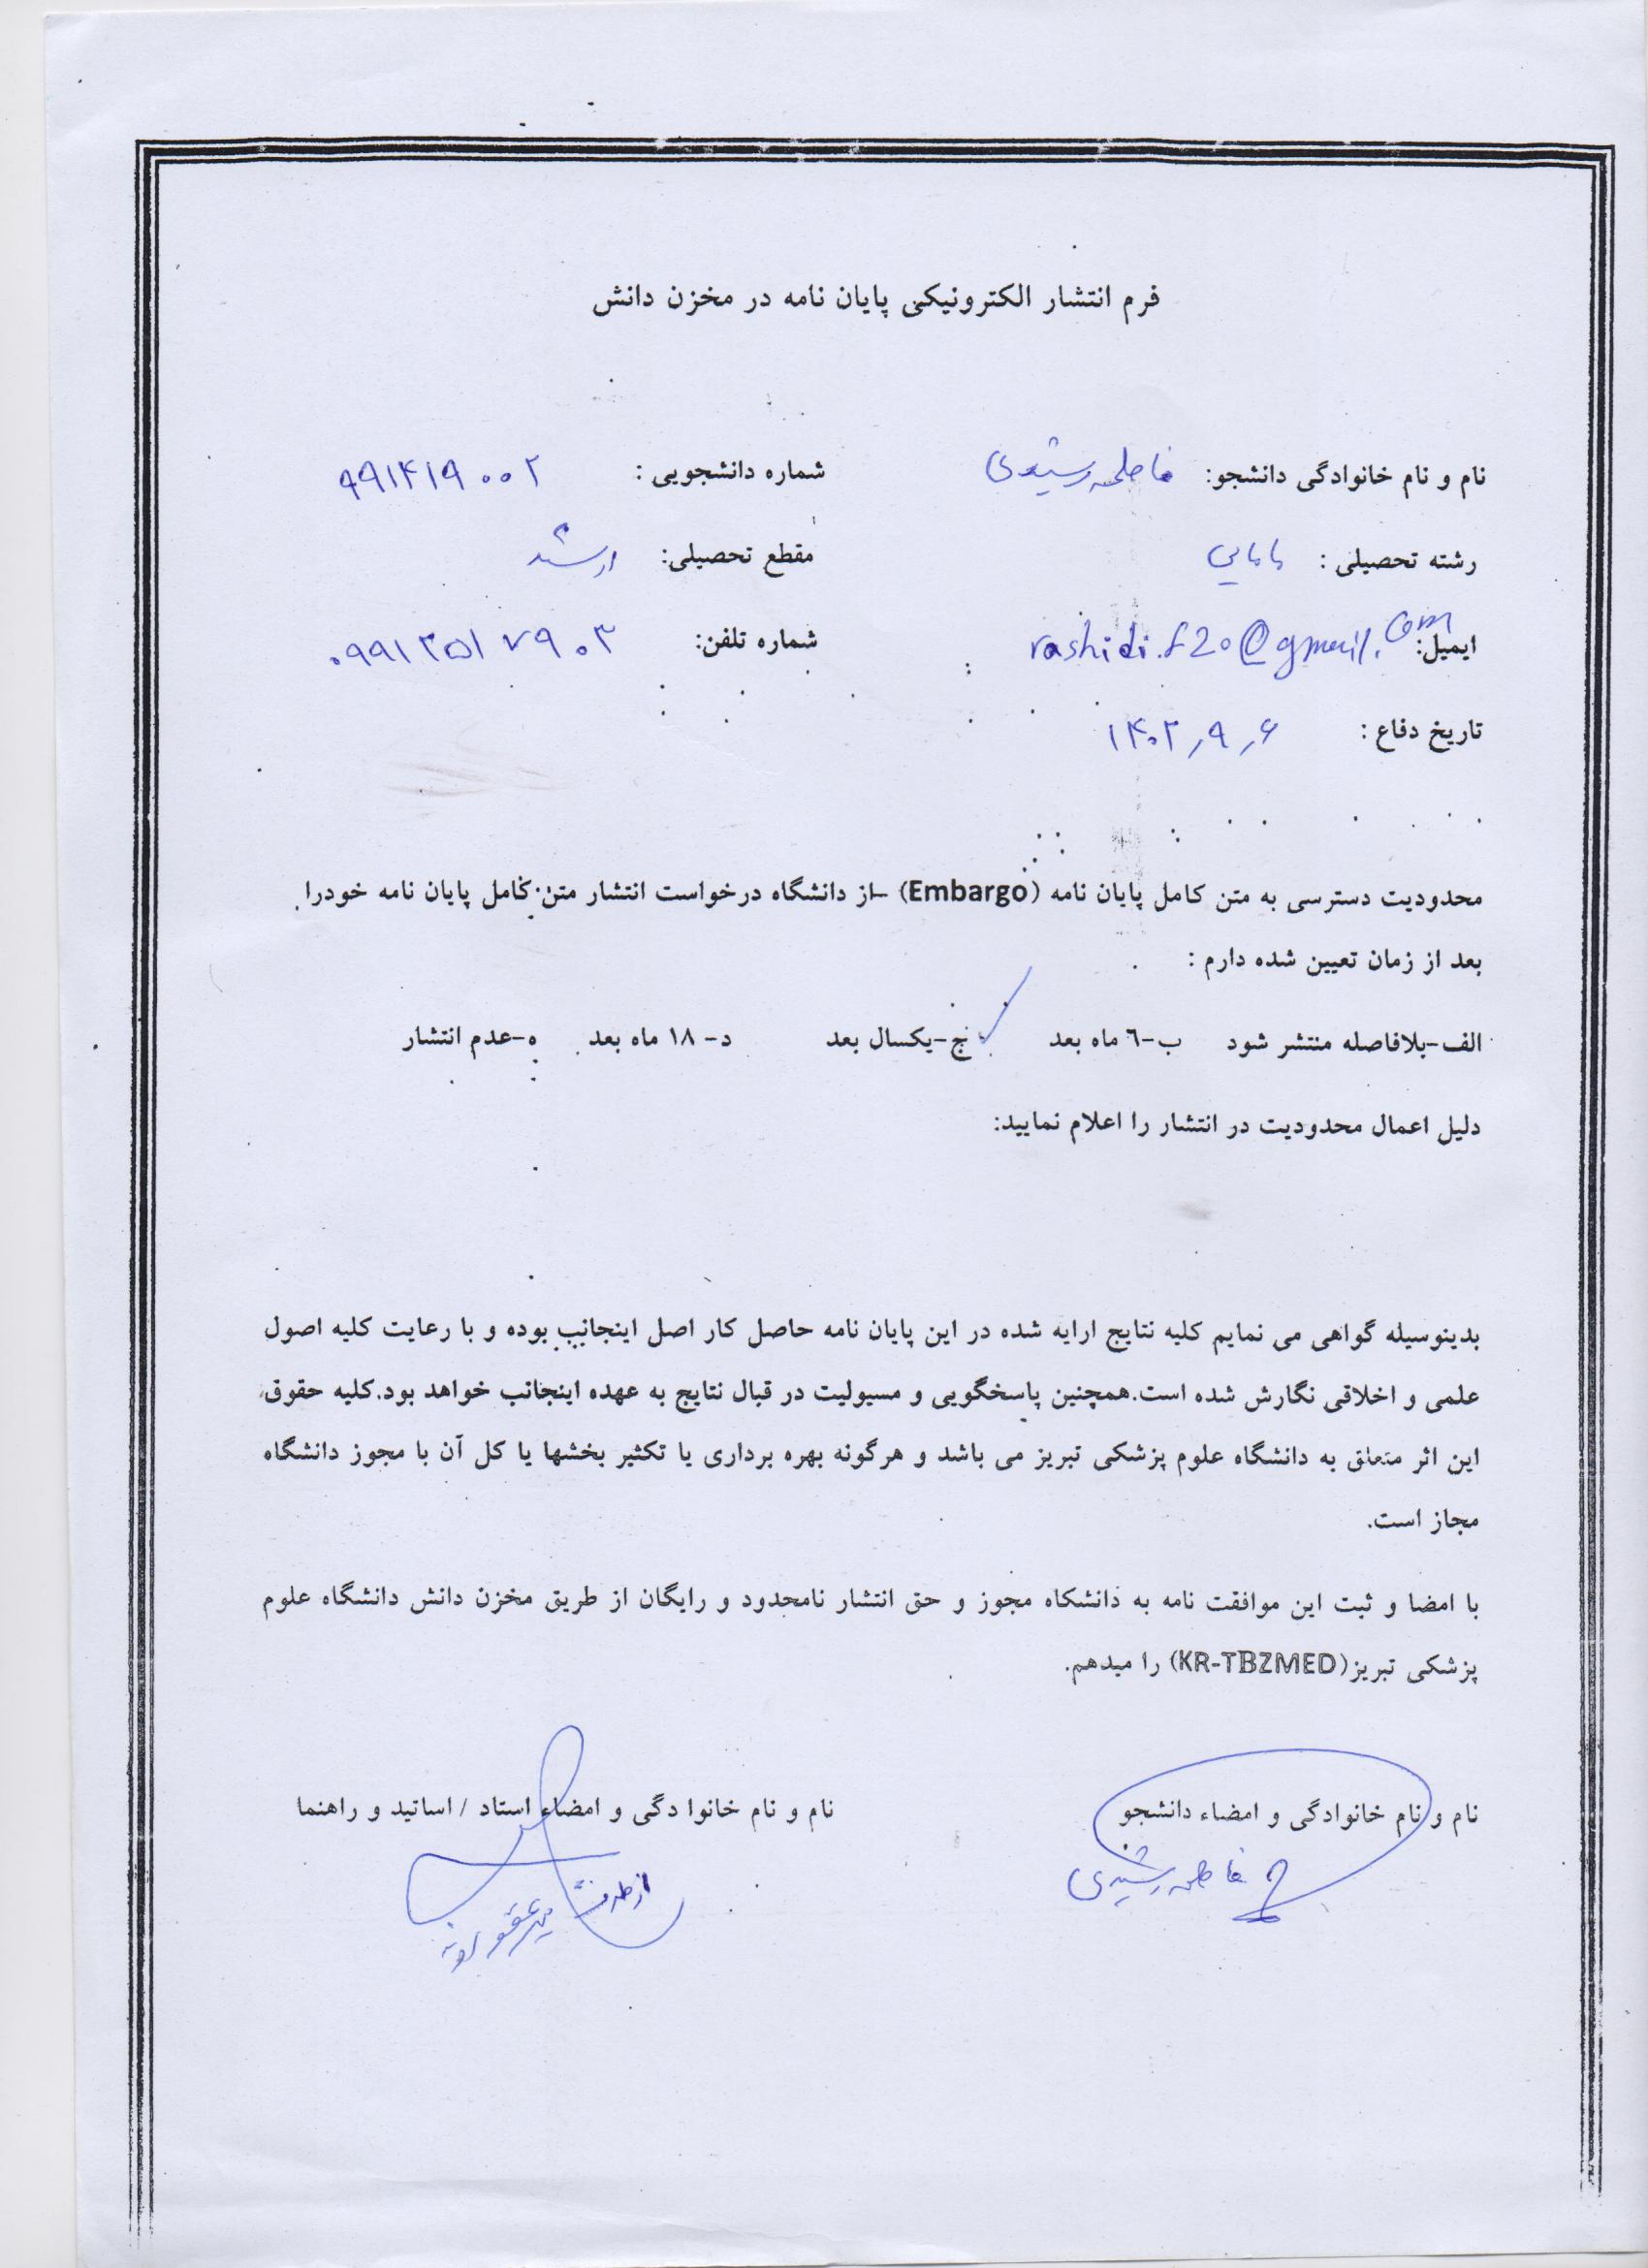 فرم انتشار الکترونیکی پایان نامه در مخزن دانش
نام و نام خانوادگی دانشجو: فاطمه رشیدی شماره دانشجویی : ۹۹۱۴۱۹۰۰۲
رشته تحصیلی : مامایی مقطع تحصیلی: ارشد
ایمیل: rashidi.f20@gmail.com شماره تلفن: ۰۹۹۱۳۵۱۷۹۰۳
تاریخ دفاع : ۱۴۰۲٫۹٫۶
محدودیت دسترسی به متن کامل پایان نامه (Embargo) –از دانشگاه درخواست انتشار متن کامل پایان نامه خودرا
بعد از زمان تعیین شده دارم :
الف-بلافاصله منتشر شود ب-٦ ماه بعد ج-یکسال بعد د- ۱۸ ماه بعد ه-عدم انتشار
دلیل اعمال محدودیت در انتشار را اعلام نمایید:
بدینوسیله گواهی می نمایم کلیه نتایج ارایه شده در این پایان نامه حاصل کار اصل اینجانب بوده و با رعایت کلیه اصول
علمی و اخلاقی نگارش شده است.همچنین پاسخگویی و مسیولیت در قبال نتایج به عهده اینجانب خواهد بود.کلیه حقوق
این اثر متعلق به دانشگاه علوم پزشکی تبریز می باشد و هرگونه بهره برداری یا تکثیر بخشها یا کل آن با مجوز دانشگاه
مجاز است.
با امضا و ثبت این موافقت نامه به دانشکاه مجوز و حق انتشار نامحدود و رایگان از طریق مخزن دانش دانشگاه علوم
پزشکی تبریز(KR-TBZMED) را میدهم.
نام و نام خانوادگی و امضاء دانشجو نام و نام خانوا دگی و امضاء استاد / اساتید و راهنما
فاطمه رشیدی از طرف